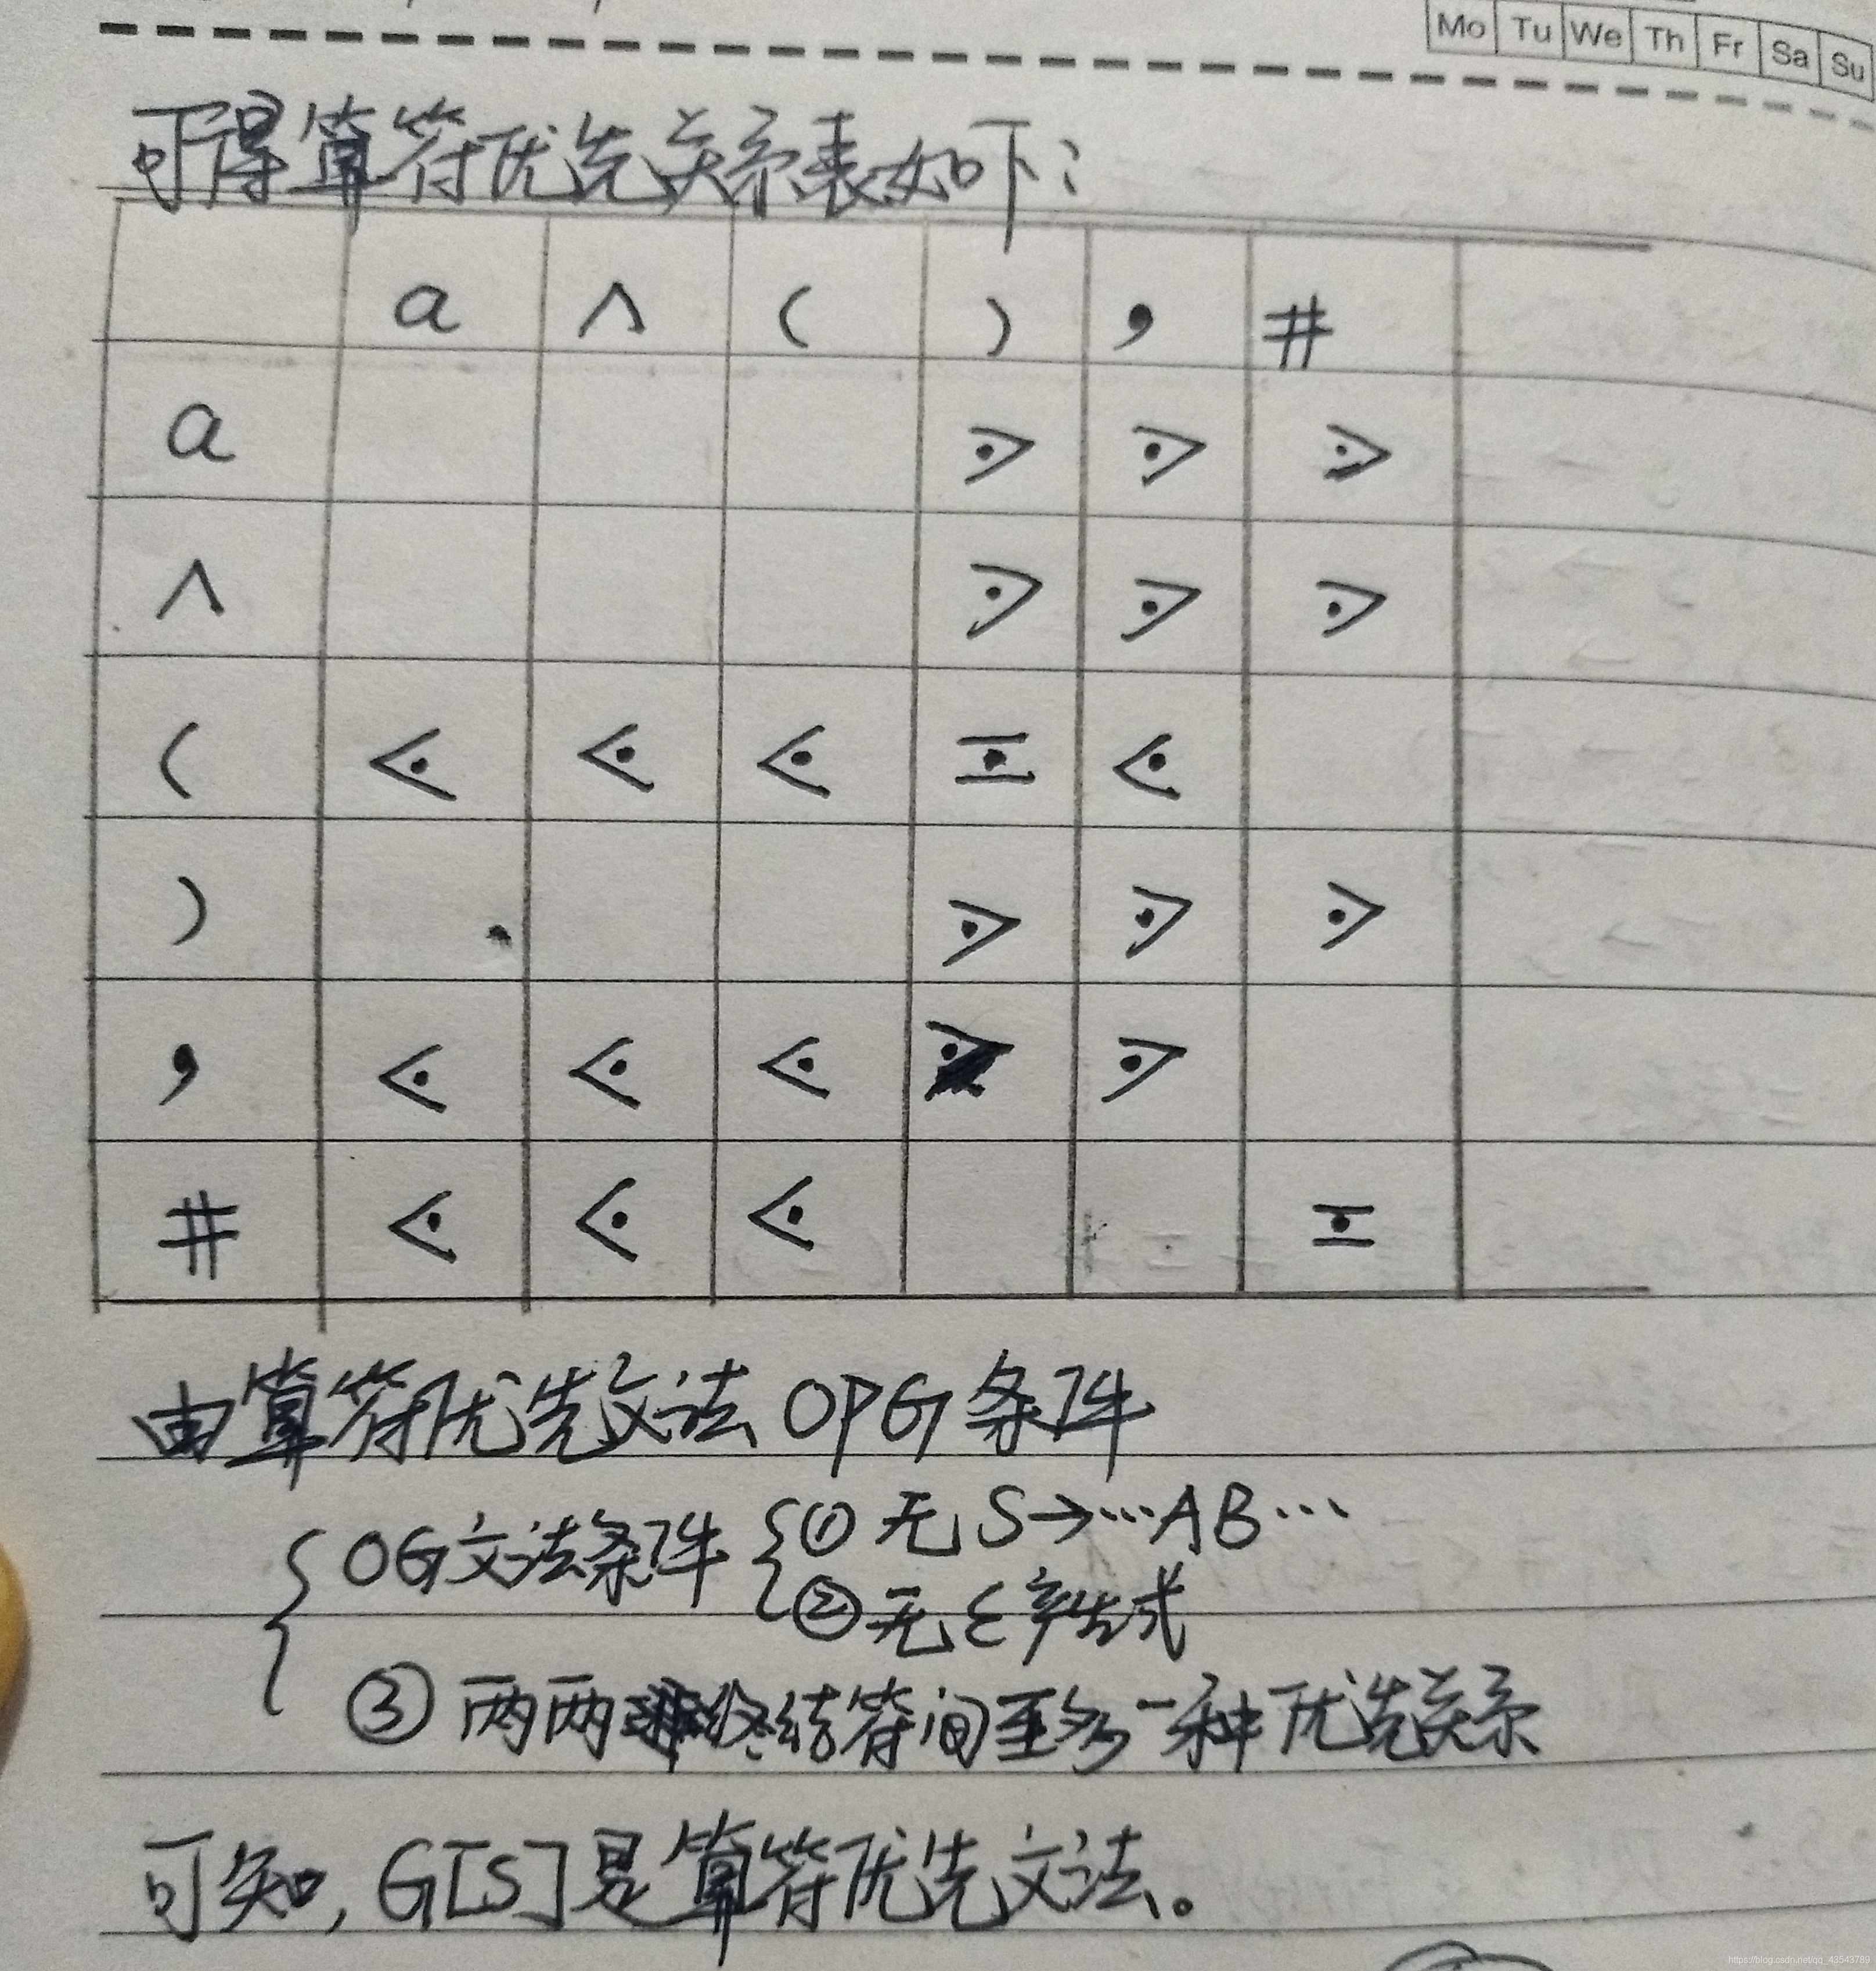 Mo Tu We Th Fr Sa Su
可得算符优先关系表如下:
a ∧ ( ) , #
a ⋗ ⋗ ⋗
∧ ⋗ ⋗ ⋗
( ⋖ ⋖ ⋖ ≐ ⋖
) ⋗ ⋗ ⋗
, ⋖ ⋖ ⋖ ⋗ ⋗
# ⋖ ⋖ ⋖ ≐
由算符优先文法OPG条件
OG文法条件 ① 无 S→…AB…
② 无ε产生式
③ 两两终结符间至多一种优先关系
可知, G[S]是算符优先文法。
https://blog.csdn.net/qq_43543789